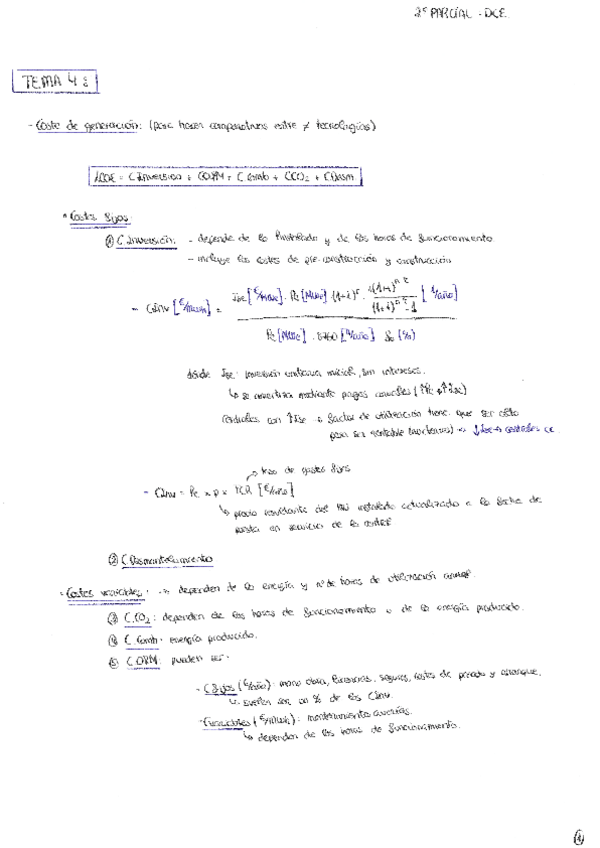 2º PARCIAL - DCE
TEMA 4:
- Coste de generación: (para hacer comparativas entre ≠ tecnologías)
LCOE = C Inversión + COYM + C Comb + CCO2 + CDesm
* Costes fijos:
① C Inversión: - depende de la Pinstalada y de las horas de funcionamiento
- incluye los costes de pre-construcción y construcción
- CInv [€/MWh] = Ise [€/MWe] · Pe [MWe] (1+i)ᶜ · i(1+i)ⁿ / (1+i)ⁿ - 1 [1/año]
Pe [MWe] · 8760 [h/año] (%)
dónde Ise: inversión unitaria inicial, sin intereses.
↳ se amortiza mediante pagos anuales
centrales con ↑Ise → factor de utilización tiene que ser alto
para ser rentable (nucleares) → ↓Ise → centrales CC
tasa de gastos fijos
- CInv = Pe × p × TCR [€/año]
↳ precio constante del MW instalado actualizado a la fecha de
puesta en servicio de la central
② C Desmantelamiento
- Costes variables: → dependen de la energía y nº de horas de utilización anual.
③ C.CO2: dependen de las horas de funcionamiento o de la energía producida.
④ C Comb: energía producida.
⑤ C OYM: pueden ser:
- C fijos (€/año): mano obra, financieros, seguros, costes de parada y arranque.
↳ suelen ser un % de los CInv.
- Cvariables (€/MWh): mantenimientos averías.
↳ dependen de las horas de funcionamiento.